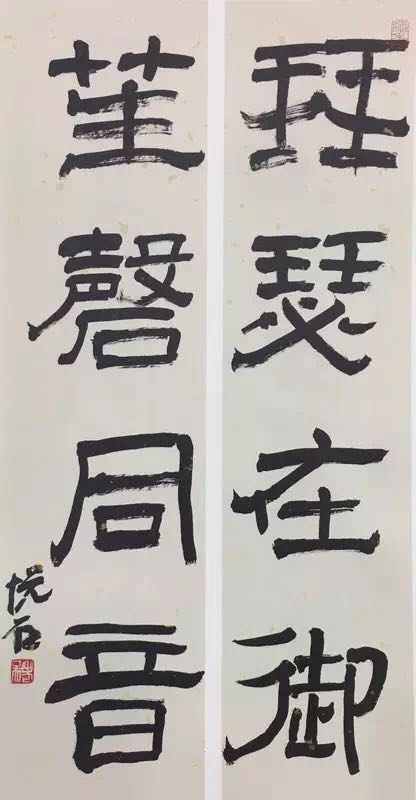 琴瑟在御
笙磬同音
悦石